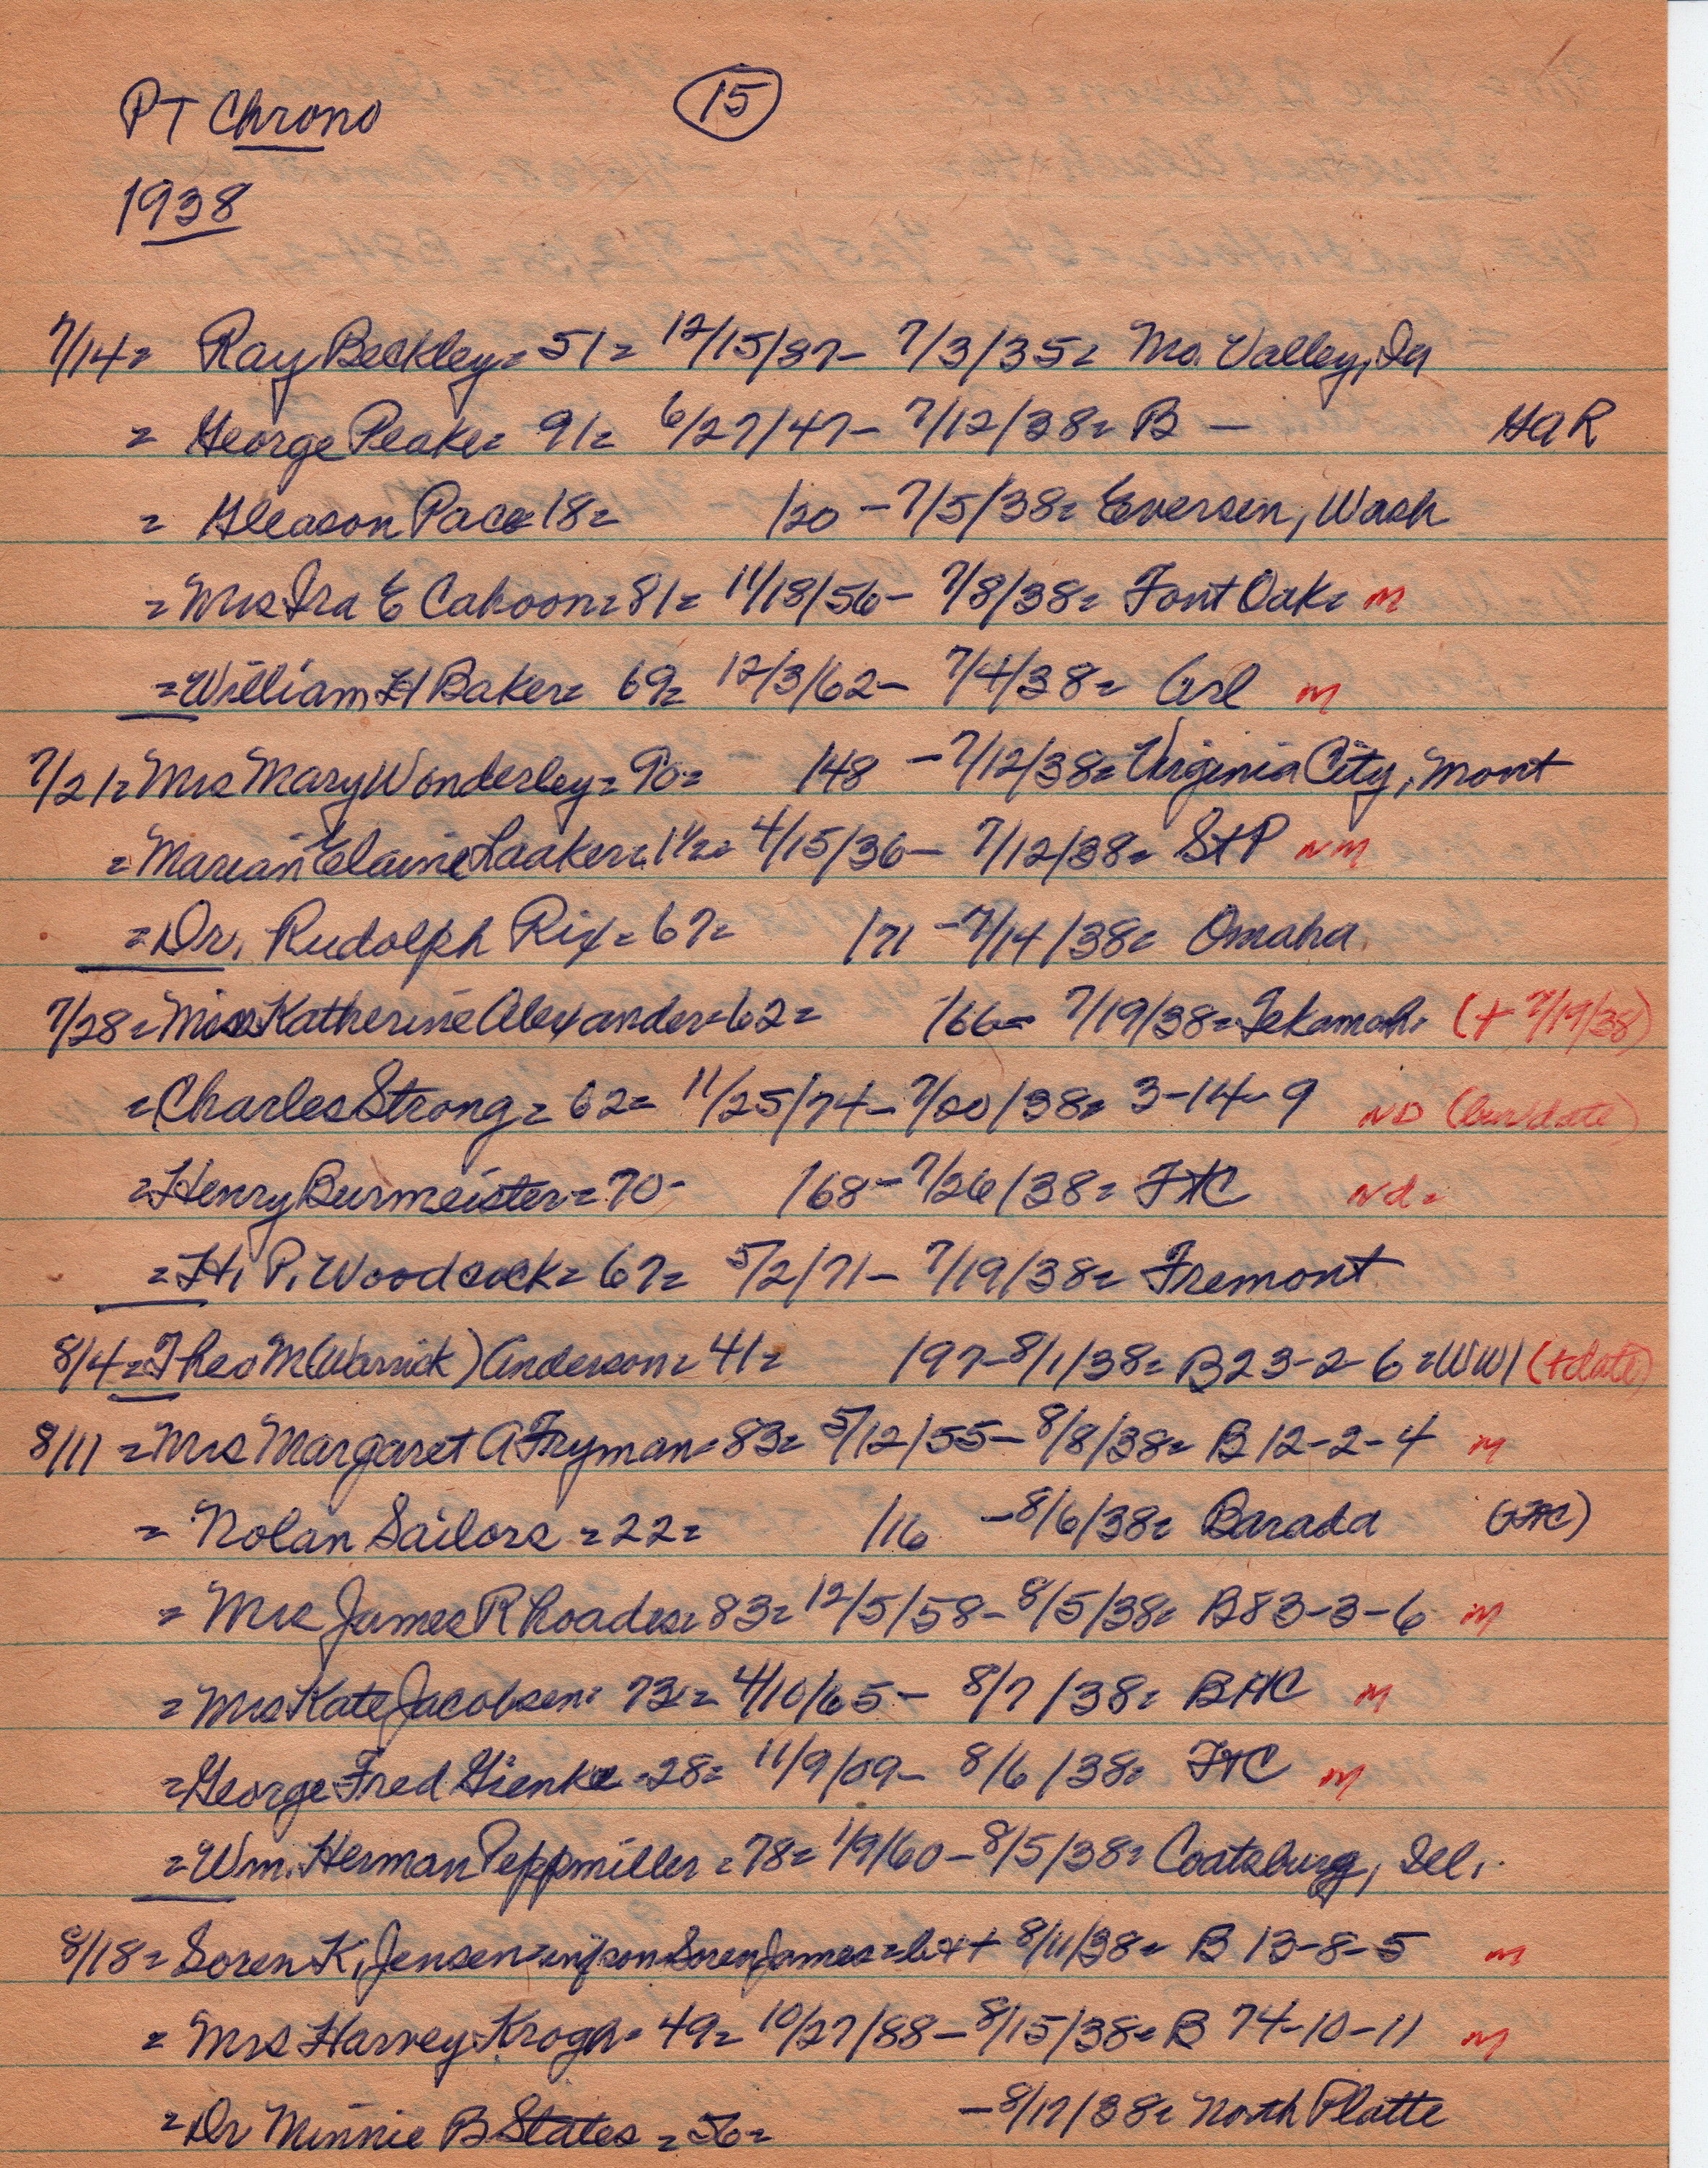 PT Chrono 15
1938
7/14= Ray Beckley= 51= 12/15/87- 7/3/35= Mo. Valley, Ia
= George Peake= 91= 6/27/47- 7/12/38= B - GAR
= Gleason Pace= 18= /20 - 7/5/38= Eversen, Wash
= Mrs Ira E Cahoon= 81= 11/18/56- 7/8/38= Font Oak= m
= William H Baker= 69= 12/3/62- 7/4/38= Arl m
7/21= Mrs Mary Wonderley= 90= /48 - 7/12/38= Virginia City, Mont
= Marian Elaine Laaker= 1½= 4/15/36- 7/12/38= St P NM
= Dr. Rudolph Rix= 67= /71 - 7/14/38= Omaha
7/28= Miss Katherine Alexander= 62= /66= 7/19/38= Tekamah. (+ 7/19/38)
= Charles Strong= 62= 11/25/74- 7/20/38= 3-14-9 ND (bur/date)
= Henry Burmeister= 70- /68- 7/26/38= FtC nd=
= H. P. Woodcock= 67= 5/2/71- 7/19/38= Fremont
8/4= Theo M (Warrick) Anderson= 41= /97- 8/1/38= B 23-2-6 = WW1 (+date)
8/11 = Mrs Margaret A Fryman= 83= 5/12/55- 8/8/38= B 12-2-4 m
= Nolan Sailors = 22= /16 - 8/6/38= Barada (FtC)
= Mrs James R Rhoades= 83= 12/5/58- 8/5/38= B 83-3-6 m
= Mrs Kate Jacobsen= 73= 4/10/65- 8/7/38= BHC m
= George Fred Gienke = 28= 11/9/09- 8/6/38= FtC m
= Wm. Herman Peppmiller = 78= 1/9/60- 8/5/38= Coatsburg, Ill.
8/18= Soren K. Jensen= inf son Soren James= b++ 8/11/38= B 13-8-5 m
= Mrs Harvey Krogh= 49= 10/27/88- 8/15/38= B 74-10-11 m
= Dr Minnie B States = 56= - 8/17/38= North Platte